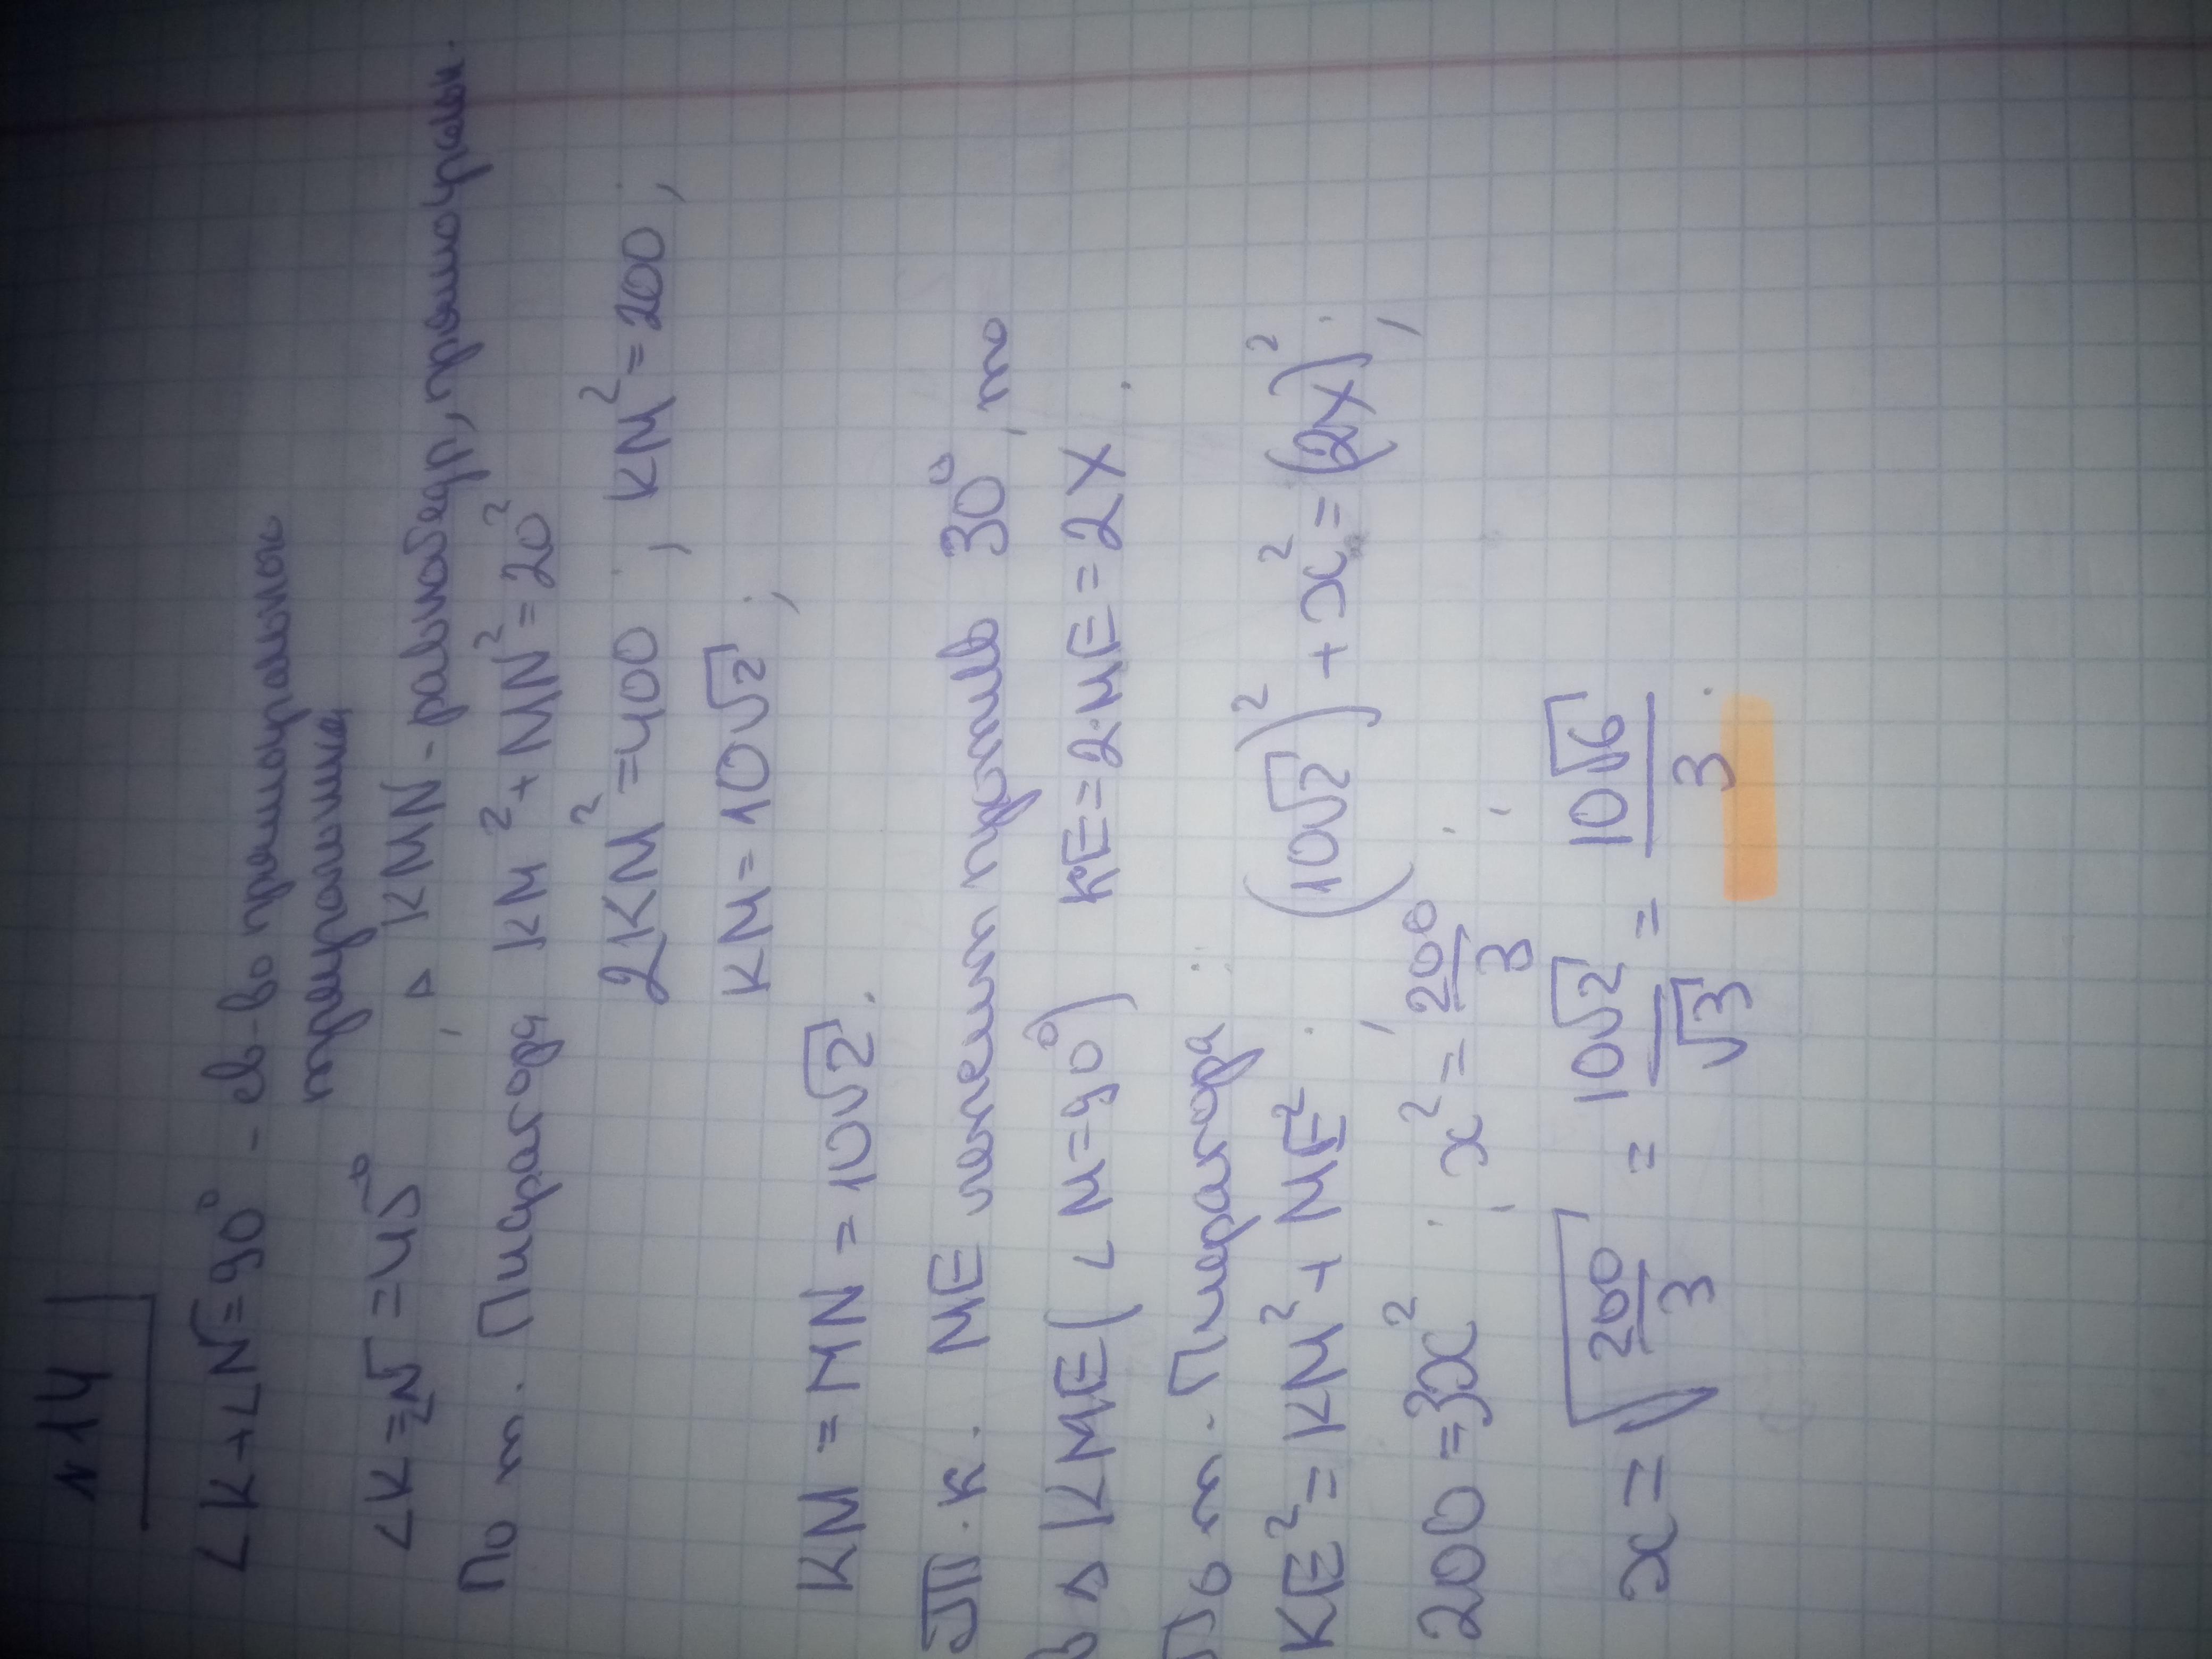 № 14
∠K+∠N=90° - св-во прямоугольн
треугольника
∠K=∠N=45°, △ KMN - равнобедр, прямоугольн.
По т. Пифагора KM²+MN²=20²
2KM²=400; KM²=200;
KM=10√2;
KM=MN=10√2.
Т.к. ME лежит против 30°, то
в △ KME (∠M=90°) KE=2·ME=2X.
По т. Пифагора:
KE²=KM²+ME²; (10√2)²+x²=(2x)²;
200=3x²; x²=200/3;
x=√(200/3) = 10√2/√3 = 10√6/3.